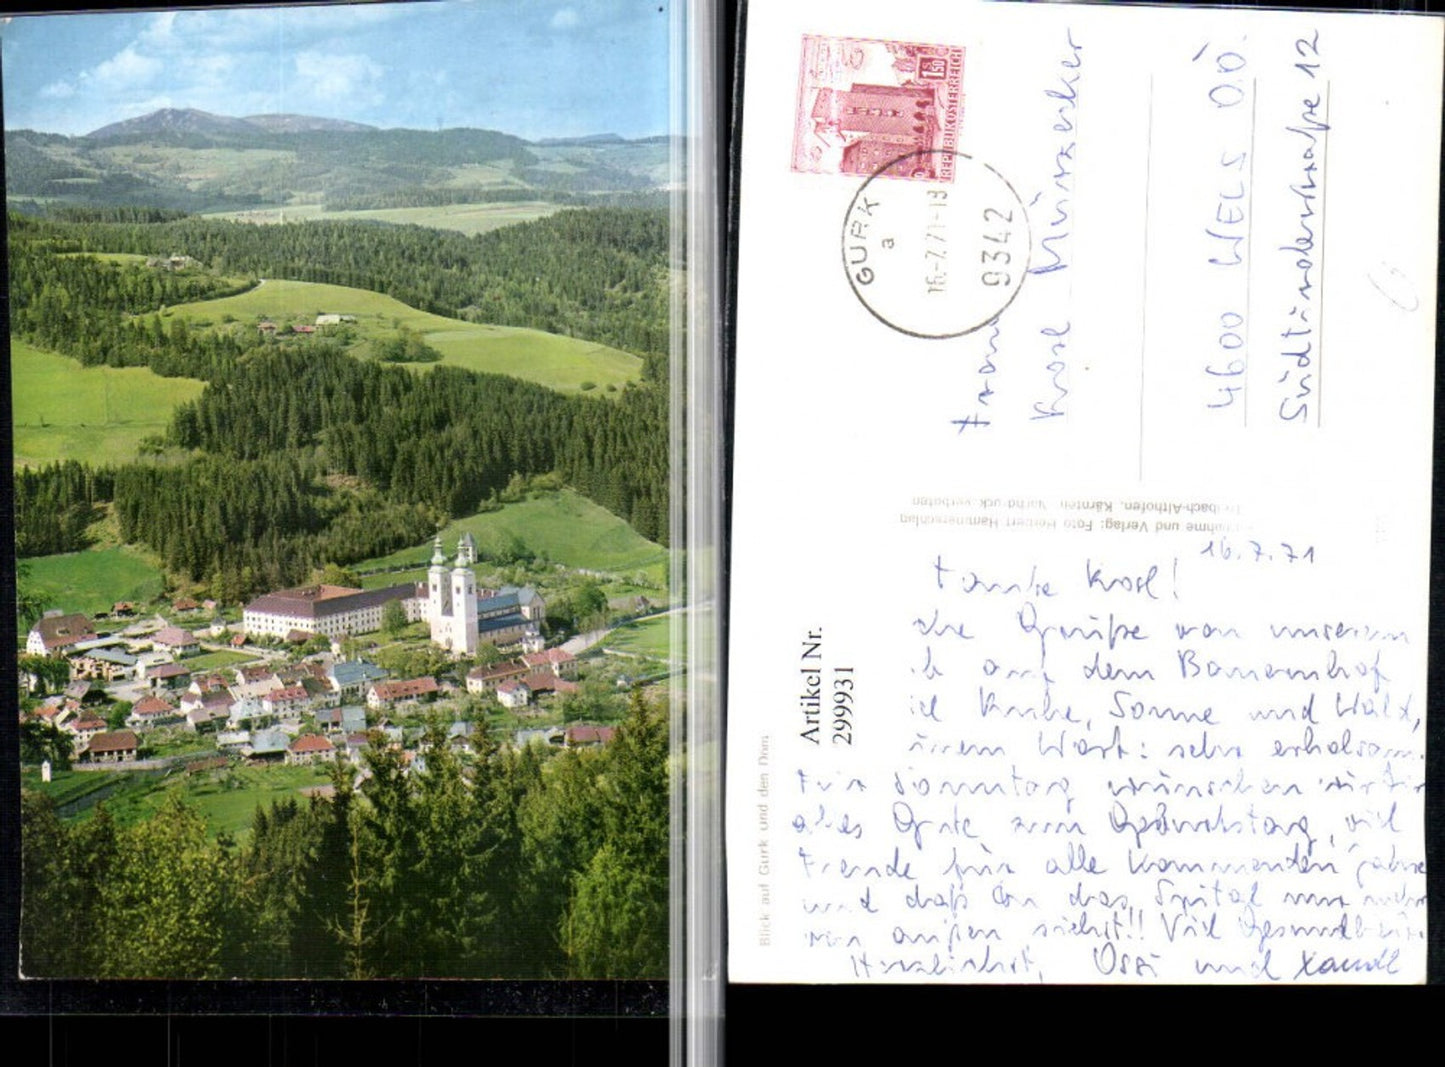 REPUBLIK ÖSTERREICH
1.50
S
GURK
a
16.-7.71-13
9342
Rosl
4600 WELS OÖ.
Südtirolerstraße 12
Aufnahme und Verlag: Foto Hammerschlag
-Althofen, Kärnten Nachdruck verboten
Blick auf Gurk und den Dom
Artikel Nr.
299931
16.7.71
Tante Rosl!
Grüße von unserem
auf dem Bauernhof
Ruhe, Sonne und Wald,
einem Wort: sehr erholsam.
Für Sonntag wünschen wir Dir
alles Gute zum Geburtstag, viel
Freude für alle kommenden Jahre
und daß Du das Spital nur mehr
von außen siehst!! Viel Gesundheit.
Herzlichst, Ossi und Xandl